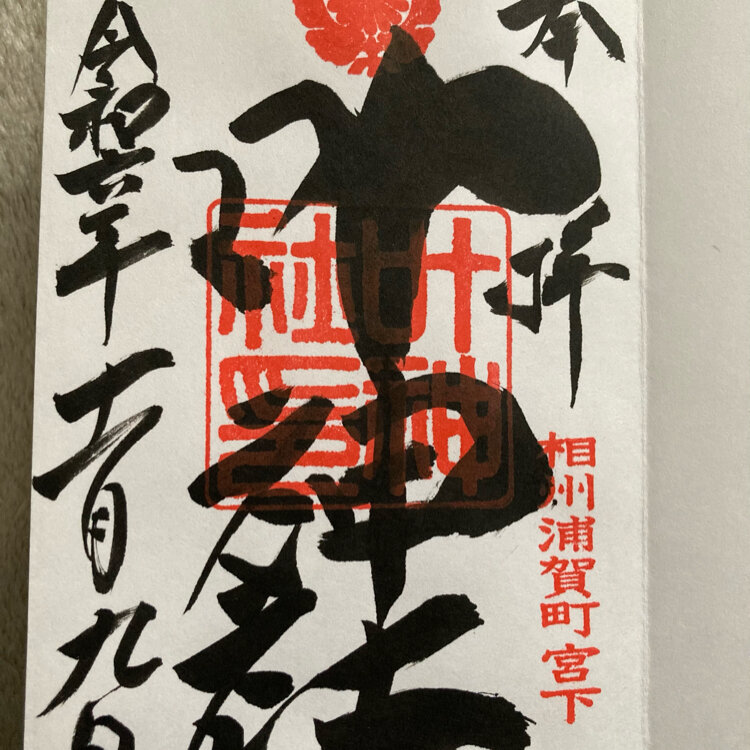 奉拝
相州浦賀町宮下
叶神社
叶神社印
令和六年十一月九日